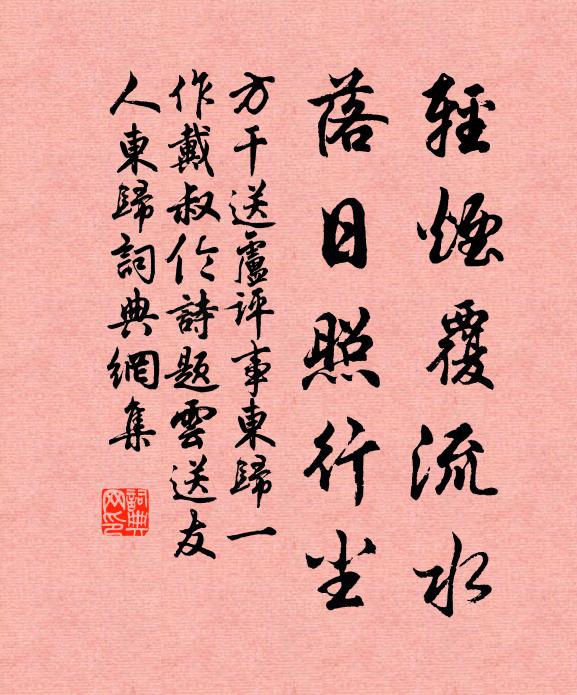 輕煙覆流水
落日照行尘
方干送盧評事東歸一
作戴叔伦詩題雲送友
人東歸詞典網集
詞典
网印